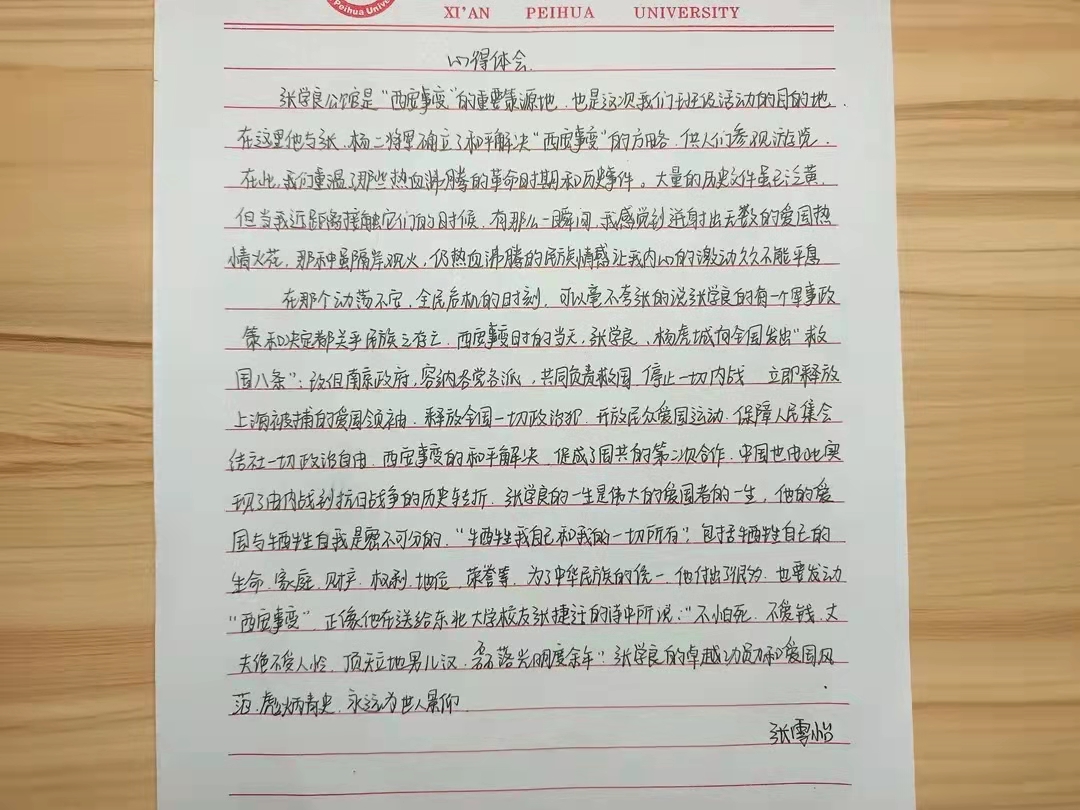 Peihua Univer
XI'AN PEIHUA UNIVERSITY
心得体会
张学良公馆是"西安事变"的重要策源地，也是这次我们班级活动的目的地，
在这里他与张、杨二将军确立了和平解决"西安事变"的方略，供人们参观游览，
在此，我们重温了那些热血沸腾的革命时期和历史事件。大量的历史文件虽已泛黄，
但当我近距离接触它们的时候，有那么一瞬间，我感觉到迸射出无数的爱国热
情火花，那种虽隔岸观火，仍热血沸腾的民族情感让我内心的激动久久不能平息
在那个动荡不定，全民危机的时刻，可以毫不夸张的说张学良的有一个军事政
策和决定都关乎民族之存亡，西安事变时的当天，张学良，杨虎城向全国发出"救
国八条"：改组南京政府，容纳各党各派，共同负责救国，停止一切内战 立即释放
上海被捕的爱国领袖，释放全国一切政治犯，开放民众爱国运动，保障人民集会
结社一切政治自由，西安事变的和平解决，促成了国共的第二次合作，中国也由此实
现了由内战到抗日战争的历史转折，张学良的一生是伟大的爱国者的一生，他的爱
国与牺牲自我是密不可分的，"牺牲我自己和我的一切所有"，包括牺牲自己的
生命，家庭，财产，权利，地位，荣誉等，为了中华民族的统一，他付出了很多，也要发动
"西安事变"，正像他在送给东北大学校友张捷迁的诗中所说："不怕死，不爱钱，丈
夫绝不受人怜，顶天立地男儿汉，磊落光明度余年"张学良的卓越功勋和爱国风
范，彪炳青史，永远为世人景仰
张雪怡